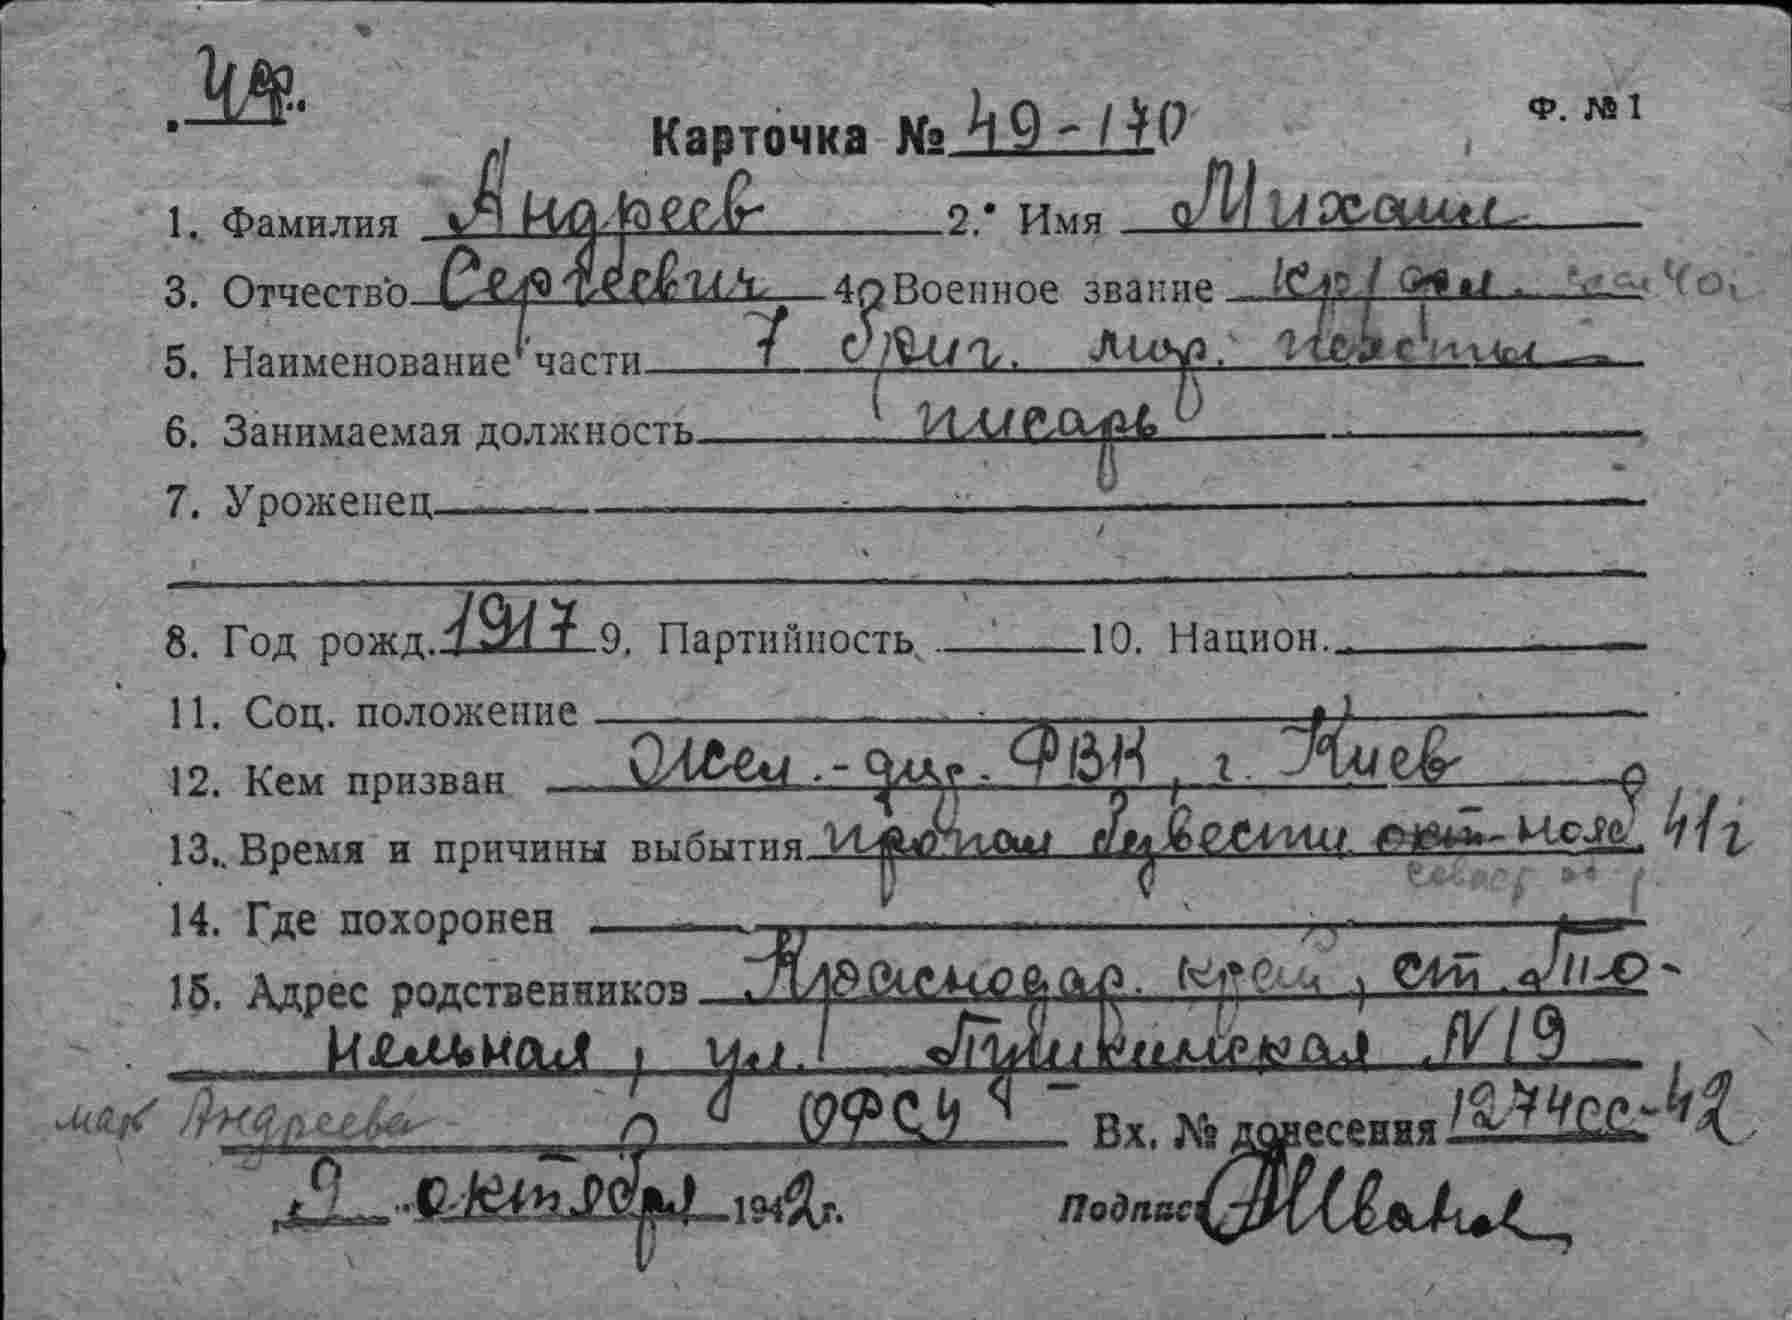 Карточка № 49-170
Ф. № 1
1. Фамилия Андреев 2. Имя Михаил
3. Отчество Сергеевич 4. Военное звание кр/фл.
5. Наименование части 7 бриг. мор. пехоты
6. Занимаемая должность писарь
7. Уроженец
8. Год рожд. 1917 9. Партийность 10. Национ.
11. Соц. положение
12. Кем призван ФВК, г. Киев
13. Время и причины выбытия пропал безвести 41г
14. Где похоронен
15. Адрес родственников Краснодар. край, ст.
ул. №19
мать Андреева Вх. № донесения 1274сс-42
9 октября 1942г. Подпись